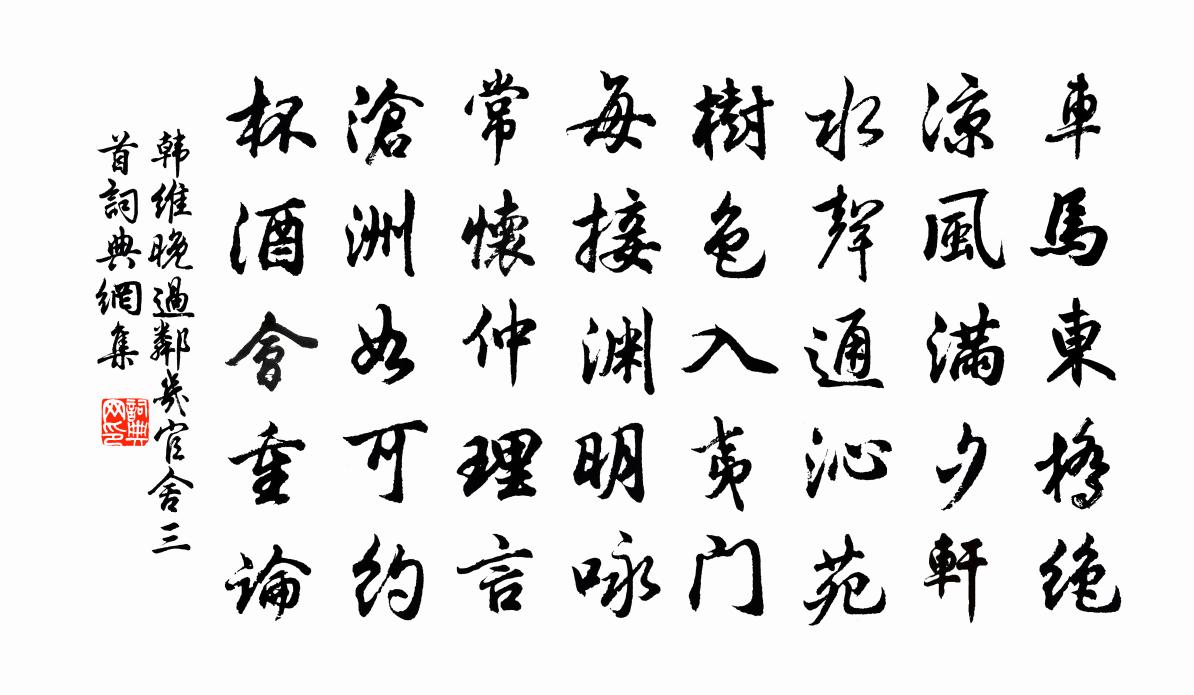 車馬東橋絶
涼風滿夕軒
水聲通沁苑
樹色入夷门
每接渊明咏
常懷仲理言
滄洲如可約
杯酒會重論
韩维晚過鄰幾官舍三
首詞典網集
詞典
网印